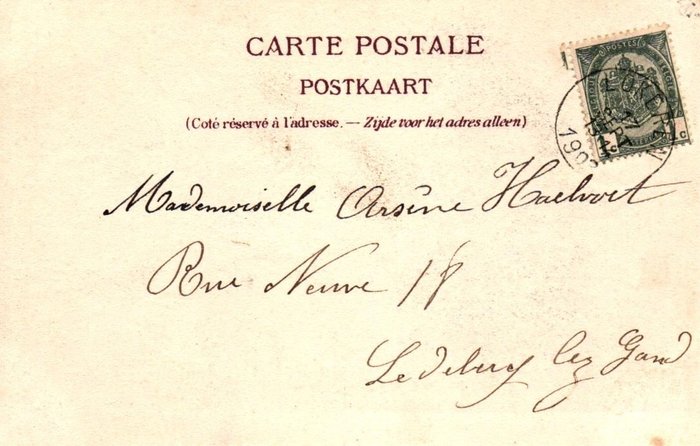 CARTE POSTALE
POSTKAART
(Coté réservé à l'adresse. — Zijde voor het adres alleen)
POSTES
LOKEREN
SEPT
190
Mademoiselle Arsène Haelvoet
Rue Neuve 18
Ledeberg lez Gand